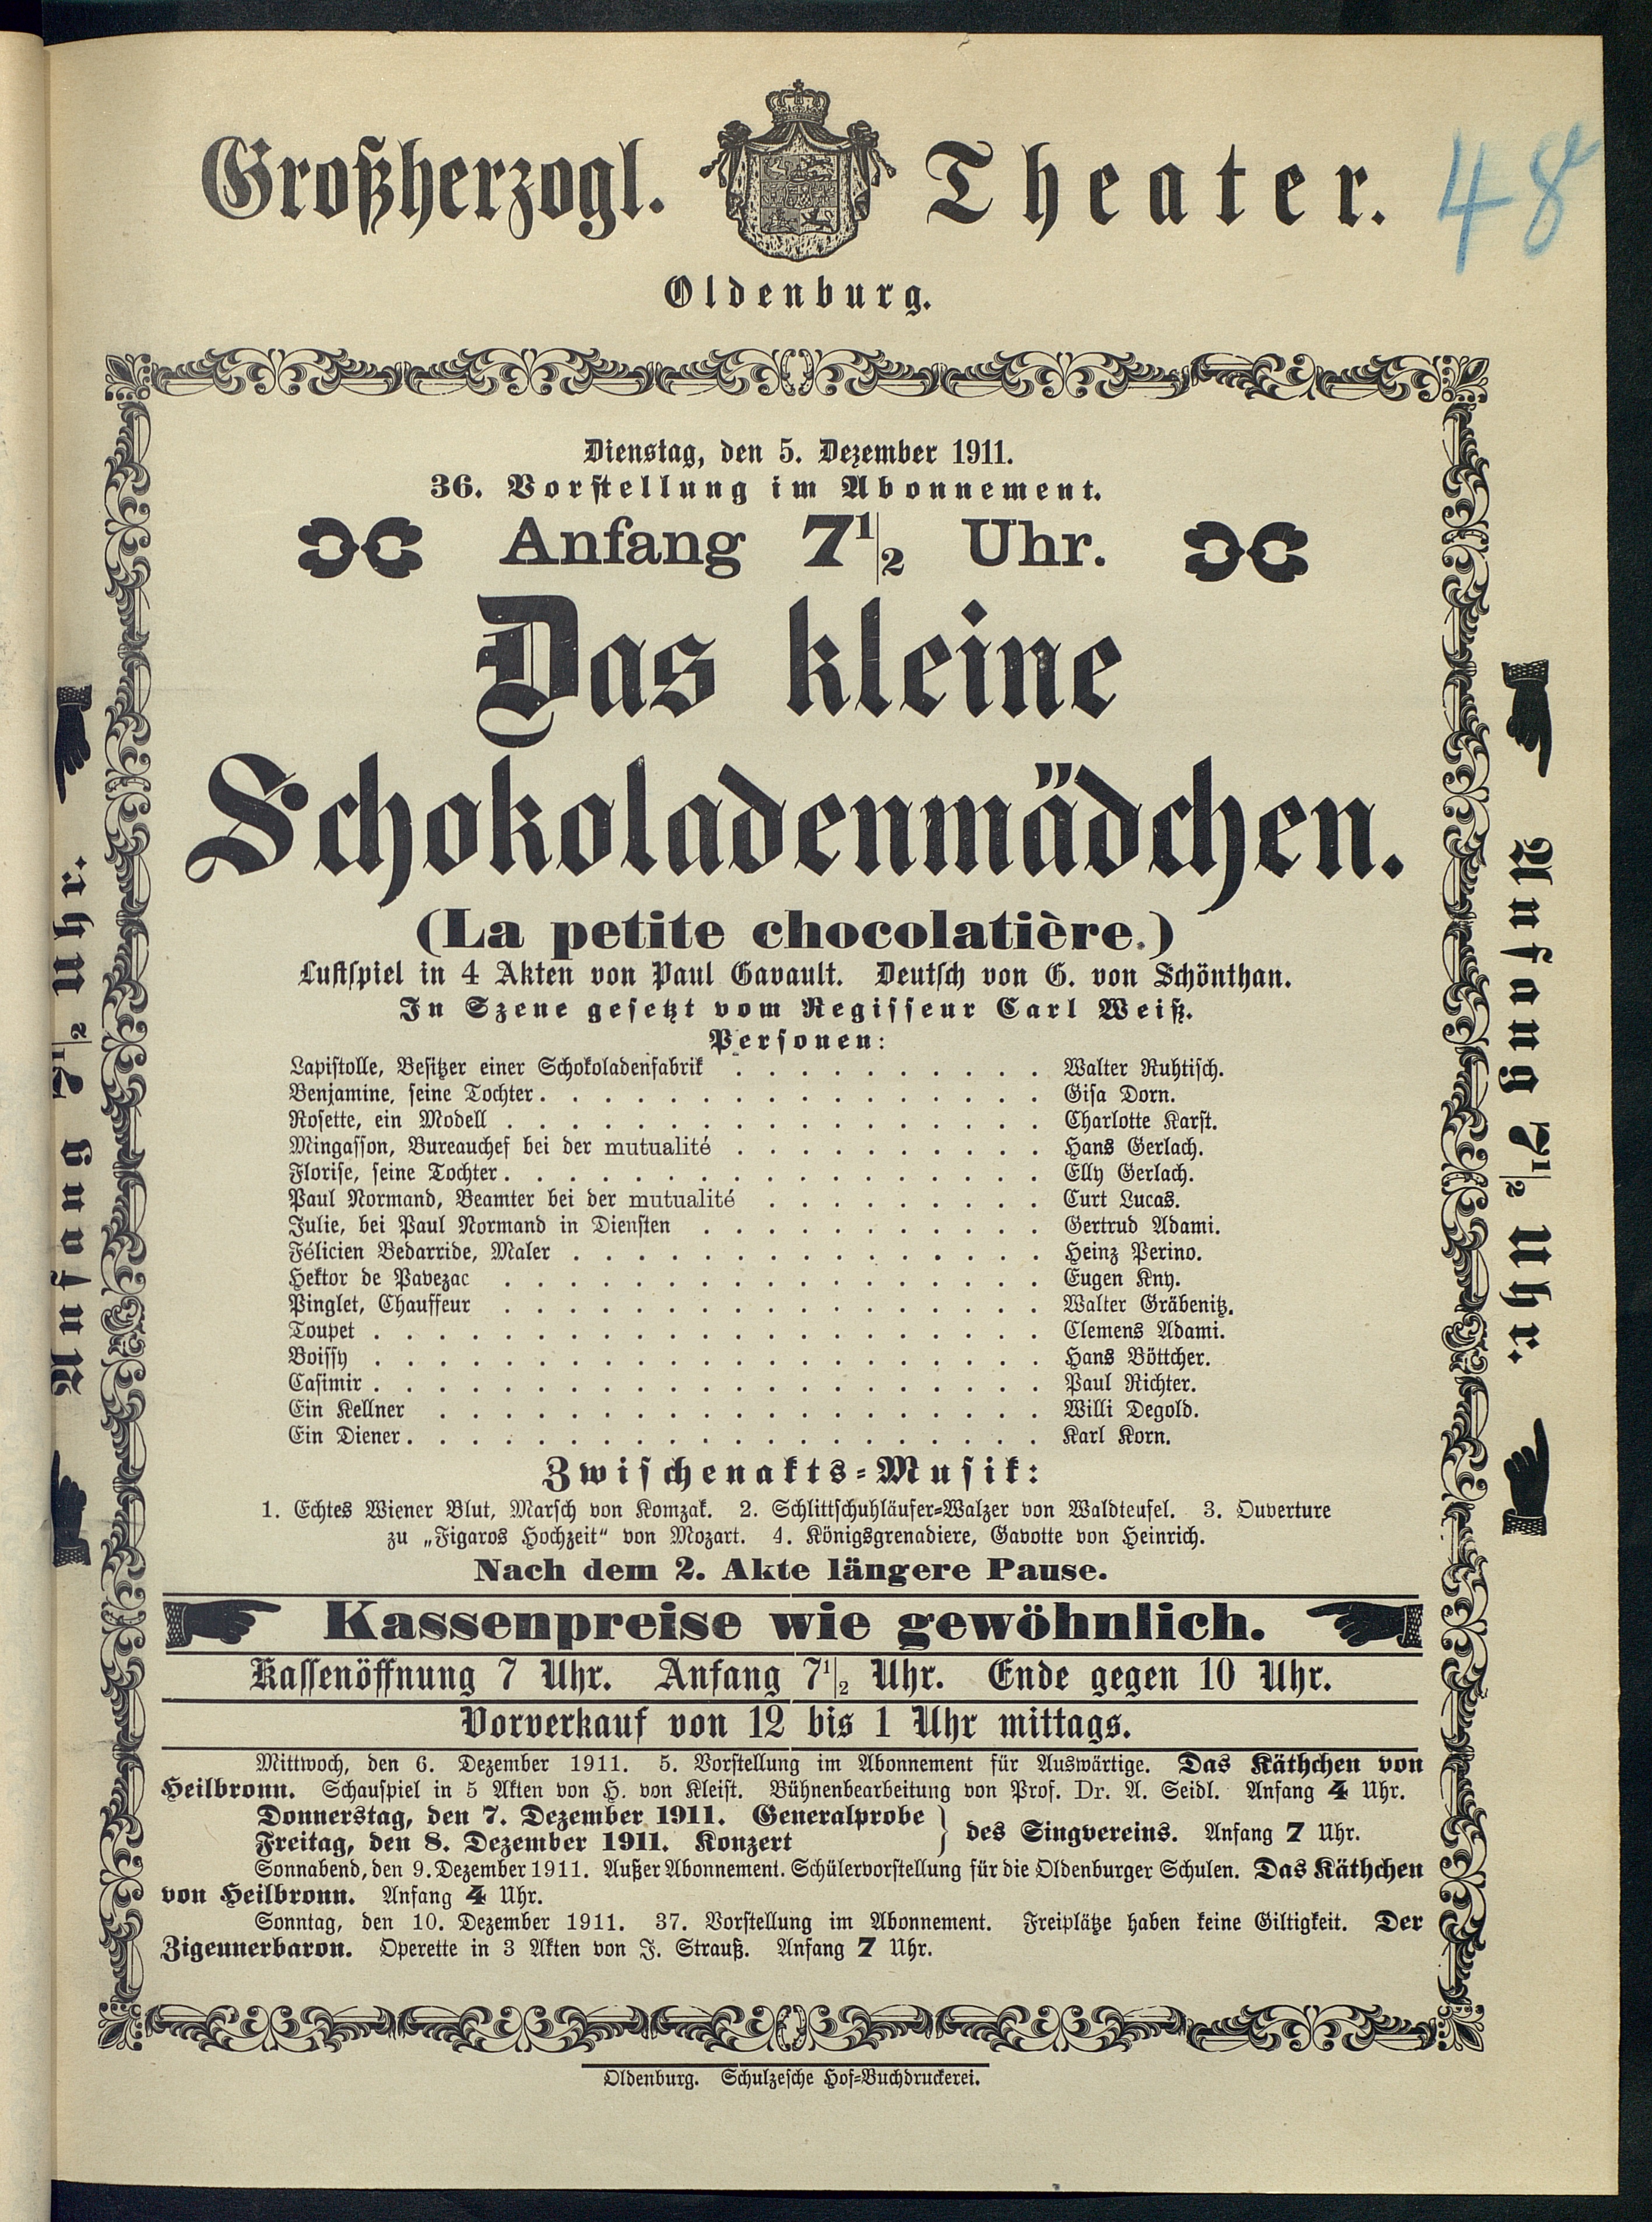 Großherzogl. Theater.
48
Oldenburg.
Dienstag, den 5. Dezember 1911.
36. Vorstellung im Abonnement.
Anfang 7 1/2 Uhr.
Das kleine
Schokoladenmädchen.
(La petite chocolatière.)
Lustspiel in 4 Akten von Paul Gavault. Deutsch von G. von Schönthan.
In Szene gesetzt vom Regisseur Carl Weiß.
Personen:
Lapistolle, Besitzer einer Schokoladenfabrik . . . . . . . . . . Walter Ruhtisch.
Benjamine, seine Tochter . . . . . . . . . . . . . . . . Gisa Dorn.
Rosette, ein Modell . . . . . . . . . . . . . . . . . Charlotte Karst.
Mingasson, Bureauchef bei der mutualité . . . . . . . . . . Hans Gerlach.
Florise, seine Tochter . . . . . . . . . . . . . . . . . Elly Gerlach.
Paul Normand, Beamter bei der mutualité . . . . . . . . . Curt Lucas.
Julie, bei Paul Normand in Diensten . . . . . . . . . . . Gertrud Adami.
Félicien Bedarride, Maler . . . . . . . . . . . . . . . Heinz Perino.
Hektor de Pavezac . . . . . . . . . . . . . . . . . Eugen Kny.
Pinglet, Chauffeur . . . . . . . . . . . . . . . . . Walter Gräbenitz.
Toupet . . . . . . . . . . . . . . . . . . . . . Clemens Adami.
Boissy . . . . . . . . . . . . . . . . . . . . . Hans Böttcher.
Casimir . . . . . . . . . . . . . . . . . . . . . Paul Richter.
Ein Kellner . . . . . . . . . . . . . . . . . . . Willi Degold.
Ein Diener . . . . . . . . . . . . . . . . . . . . Karl Korn.
Zwischenakts-Musik:
1. Echtes Wiener Blut, Marsch von Komzak. 2. Schlittschuhläufer-Walzer von Waldteufel. 3. Ouverture
zu „Figaros Hochzeit“ von Mozart. 4. Königsgrenadiere, Gavotte von Heinrich.
Nach dem 2. Akte längere Pause.
Kassenpreise wie gewöhnlich.
Kassenöffnung 7 Uhr. Anfang 7 1/2 Uhr. Ende gegen 10 Uhr.
Vorverkauf von 12 bis 1 Uhr mittags.
Mittwoch, den 6. Dezember 1911. 5. Vorstellung im Abonnement für Auswärtige. Das Käthchen von
Heilbronn. Schauspiel in 5 Akten von H. von Kleist. Bühnenbearbeitung von Prof. Dr. A. Seidl. Anfang 4 Uhr.
Donnerstag, den 7. Dezember 1911. Generalprobe
Freitag, den 8. Dezember 1911. Konzert } des Singvereins. Anfang 7 Uhr.
Sonnabend, den 9. Dezember 1911. Außer Abonnement. Schülervorstellung für die Oldenburger Schulen. Das Käthchen
von Heilbronn. Anfang 4 Uhr.
Sonntag, den 10. Dezember 1911. 37. Vorstellung im Abonnement. Freiplätze haben keine Giltigkeit. Der
Zigeunerbaron. Operette in 3 Akten von J. Strauß. Anfang 7 Uhr.
Oldenburg. Schulzesche Hof-Buchdruckerei.
Anfang 7 1/2 Uhr.
Anfang 7 1/2 Uhr.